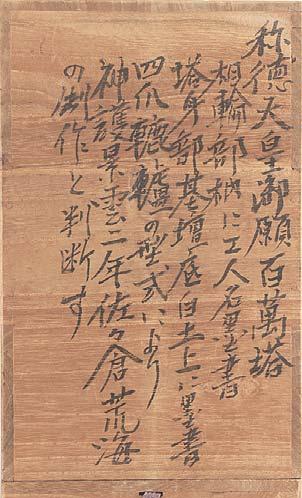 称徳天皇御願百萬塔
相輪部枘に工人名墨書
塔身部基壇底白土上に墨書
四爪轆轤の型式により
神護景雲二年佐々倉荒海
の御作と判断す